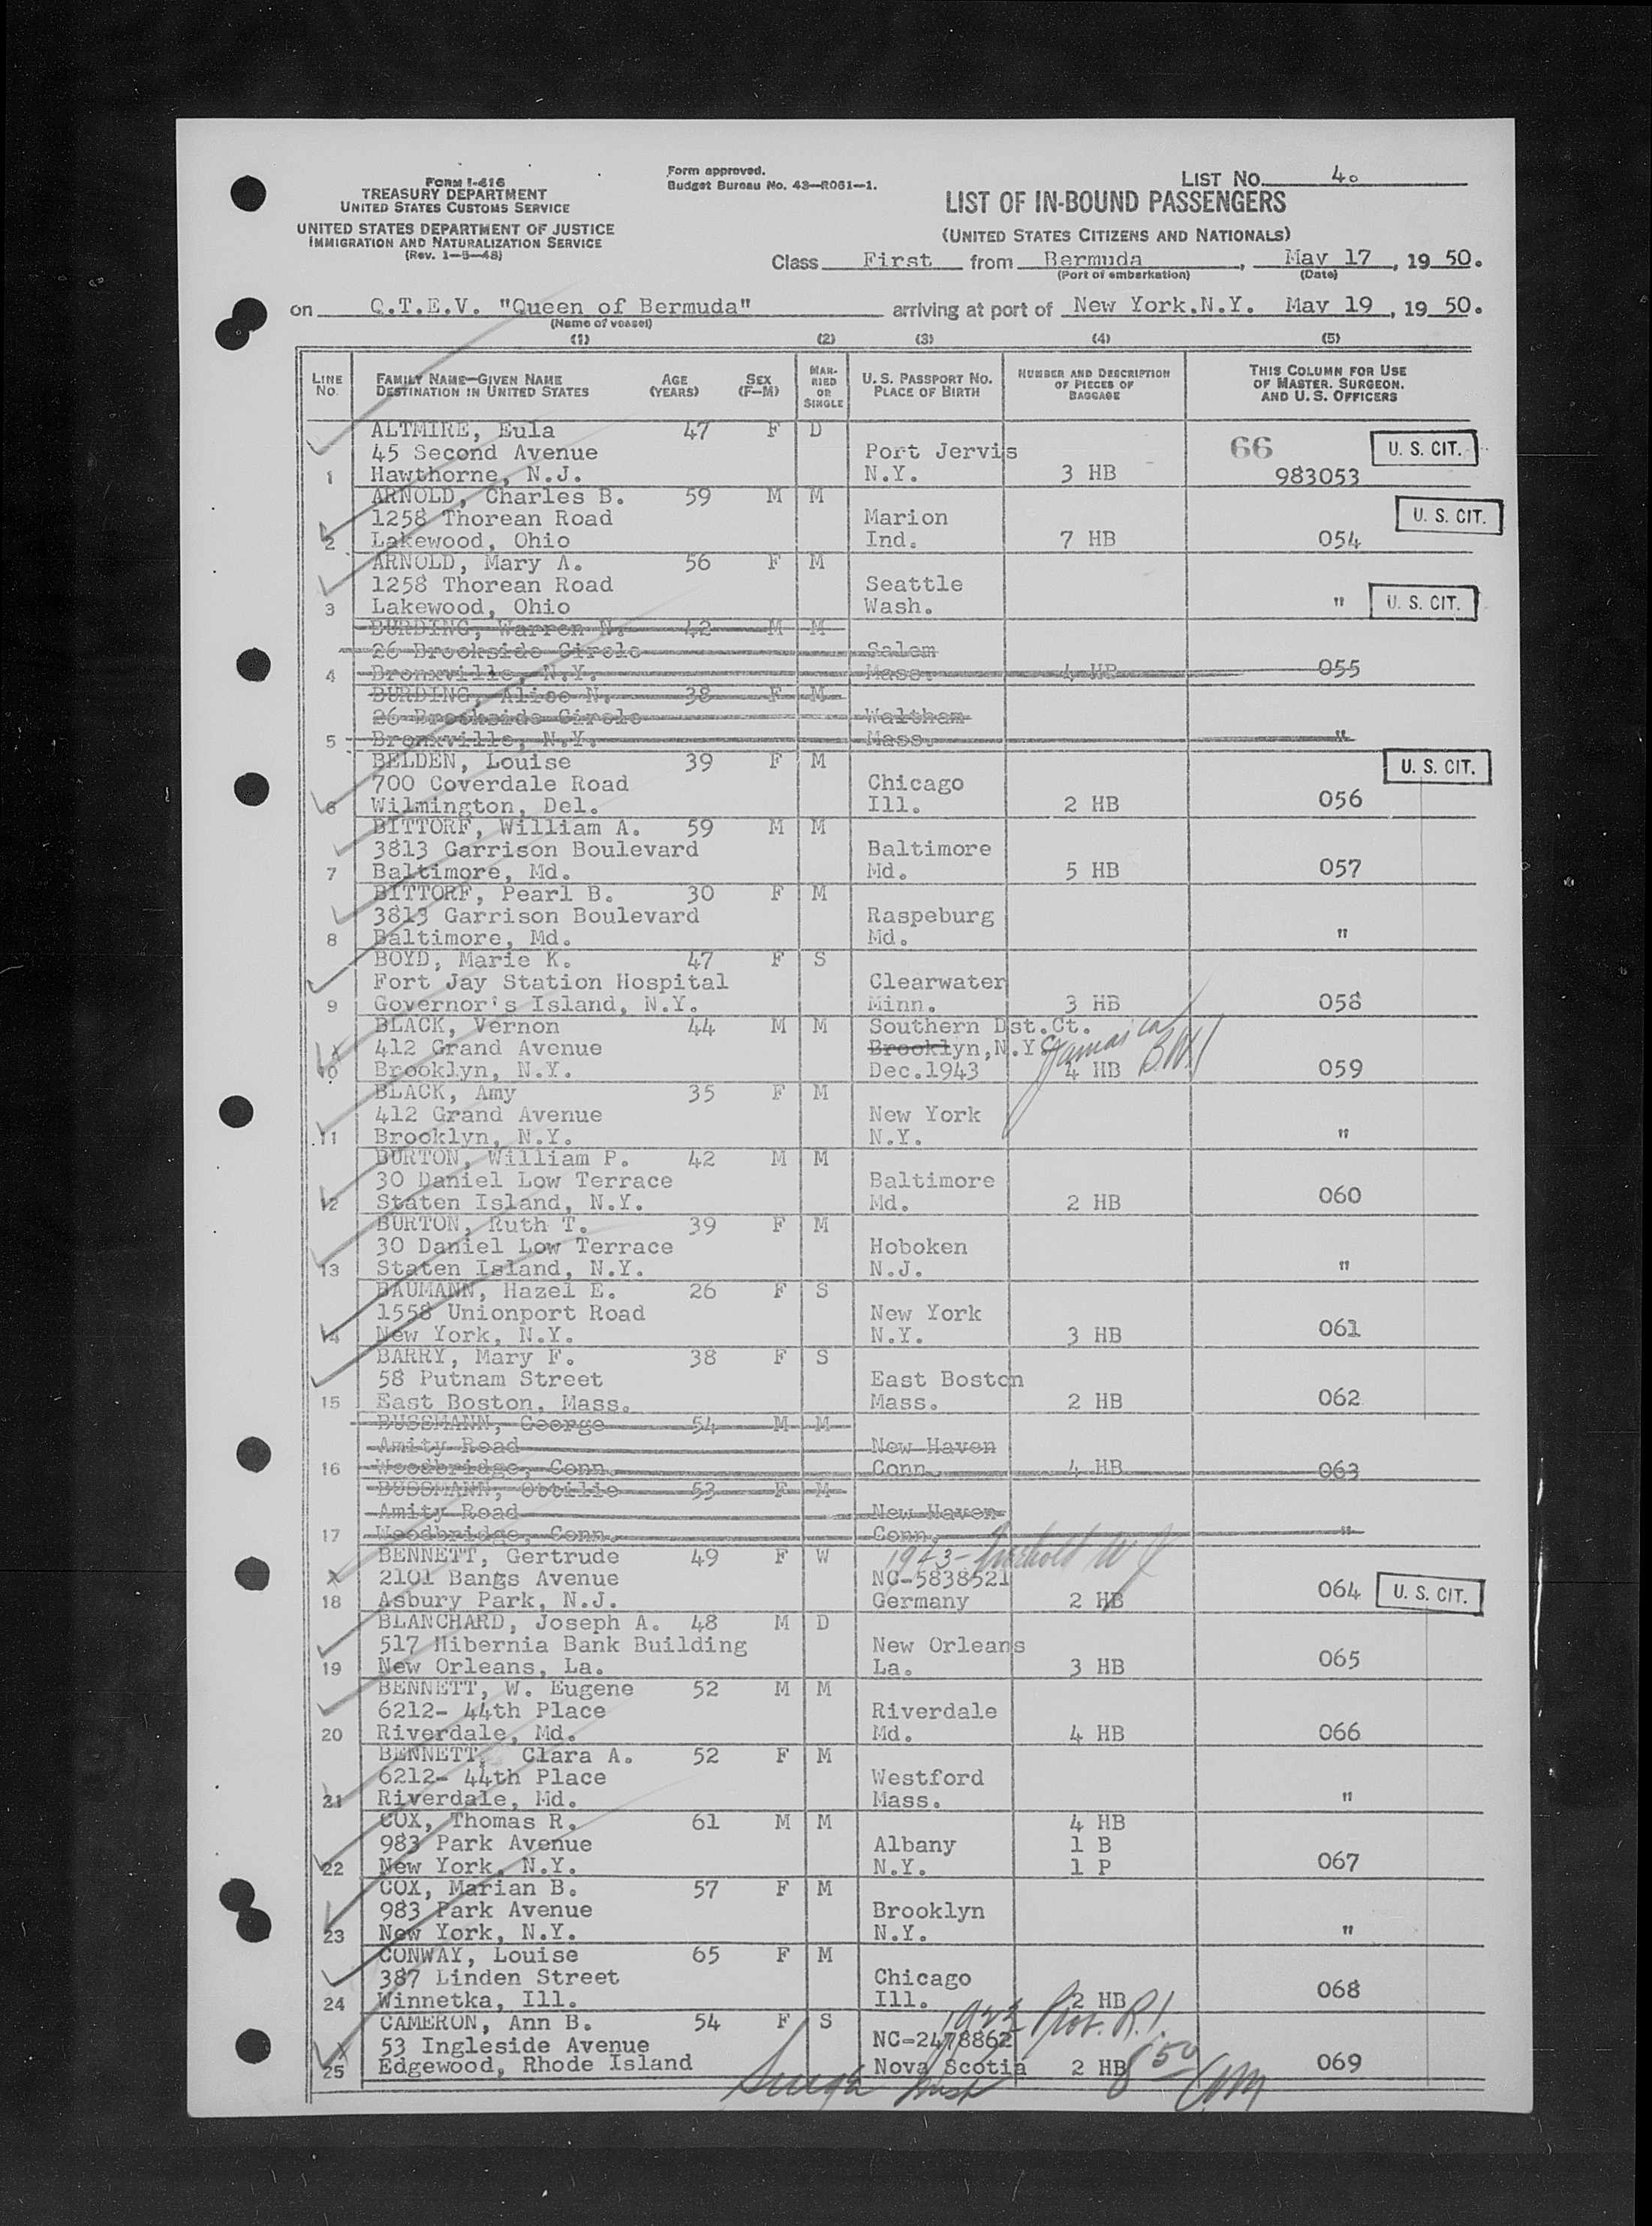 Form I-416
TREASURY DEPARTMENT
UNITED STATES CUSTOMS SERVICE
UNITED STATES DEPARTMENT OF JUSTICE
IMMIGRATION AND NATURALIZATION SERVICE
(Rev. 1-5-48)
Form approved.
Budget Bureau No. 43-R061-1.
LIST No. 40
LIST OF IN-BOUND PASSENGERS
(UNITED STATES CITIZENS AND NATIONALS)
Class First from Bermuda, May 17, 19 50.
(Port of embarkation) (Date)
on Q.T.E.V. "Queen of Bermuda" arriving at port of New York.N.Y. May 19, 19 50.
(Name of vessel)
(1) (2) (3) (4) (5)
LINE No. FAMILY NAME—GIVEN NAME DESTINATION IN UNITED STATES AGE (YEARS) SEX (F-M) MARRIED OR SINGLE U. S. PASSPORT NO. PLACE OF BIRTH NUMBER AND DESCRIPTION OF PIECES OF BAGGAGE THIS COLUMN FOR USE OF MASTER, SURGEON, AND U. S. OFFICERS
ALTMIRE, Eula 47 F D
45 Second Avenue Port Jervis 66 U. S. CIT.
1 Hawthorne, N.J. N.Y. 3 HB 983053
ARNOLD, Charles B. 59 M M
1258 Thorean Road Marion U. S. CIT.
2 Lakewood, Ohio Ind. 7 HB 054
ARNOLD, Mary A. 56 F M
1258 Thorean Road Seattle
3 Lakewood, Ohio Wash. " U. S. CIT.
BURDING, Warren N. 42 M M
26 Brookside Circle Salem
4 Bronxville, N.Y. Mass. 4 HB 055
BURDING, Alice N. 38 F M
26 Brookside Circle Waltham
5 Bronxville, N.Y. Mass. "
BELDEN, Louise 39 F M U. S. CIT.
700 Coverdale Road Chicago
6 Wilmington, Del. Ill. 2 HB 056
BITTORF, William A. 59 M M
3813 Garrison Boulevard Baltimore
7 Baltimore, Md. Md. 5 HB 057
BITTORF, Pearl B. 30 F M
3813 Garrison Boulevard Raspeburg
8 Baltimore, Md. Md. "
BOYD, Marie K. 47 F S
Fort Jay Station Hospital Clearwater
9 Governor's Island, N.Y. Minn. 3 HB 058
BLACK, Vernon 44 M M Southern Dst.Ct.
412 Grand Avenue Brooklyn,N.Y. Jamaica BWI
10 Brooklyn, N.Y. Dec.1943 4 HB 059
BLACK, Amy 35 F M
412 Grand Avenue New York
11 Brooklyn, N.Y. N.Y. "
BURTON, William P. 42 M M
30 Daniel Low Terrace Baltimore
12 Staten Island, N.Y. Md. 2 HB 060
BURTON, Ruth T. 39 F M
30 Daniel Low Terrace Hoboken
13 Staten Island, N.Y. N.J. "
BAUMANN, Hazel E. 26 F S
1558 Unionport Road New York
14 New York, N.Y. N.Y. 3 HB 061
BARRY, Mary F. 38 F S
58 Putnam Street East Boston
15 East Boston, Mass. Mass. 2 HB 062
BUSSMANN, George 54 M M
Amity Road New Haven
16 Woodbridge, Conn. Conn. 4 HB 063
BUSSMANN, Ottilie 53 F M
Amity Road New Haven
17 Woodbridge, Conn. Conn. "
BENNETT, Gertrude 49 F W 1943- Freehold N J
2101 Bangs Avenue NC-5838521
18 Asbury Park, N.J. Germany 2 HB 064 U. S. CIT.
BLANCHARD, Joseph A. 48 M D
517 Hibernia Bank Building New Orleans
19 New Orleans, La. La. 3 HB 065
BENNETT, W. Eugene 52 M M
6212- 44th Place Riverdale
20 Riverdale, Md. Md. 4 HB 066
BENNETT, Clara A. 52 F M
6212- 44th Place Westford
21 Riverdale, Md. Mass. "
COX, Thomas R. 61 M M 4 HB
983 Park Avenue Albany 1 B
22 New York, N.Y. N.Y. 1 P 067
COX, Marian B. 57 F M
983 Park Avenue Brooklyn
23 New York, N.Y. N.Y. "
CONWAY, Louise 65 F M
387 Linden Street Chicago
24 Winnetka, Ill. Ill. 2 HB 068
CAMERON, Ann B. 54 F S Prov. R.I.
53 Ingleside Avenue NC-2478862
25 Edgewood, Rhode Island Nova Scotia 2 HB 069